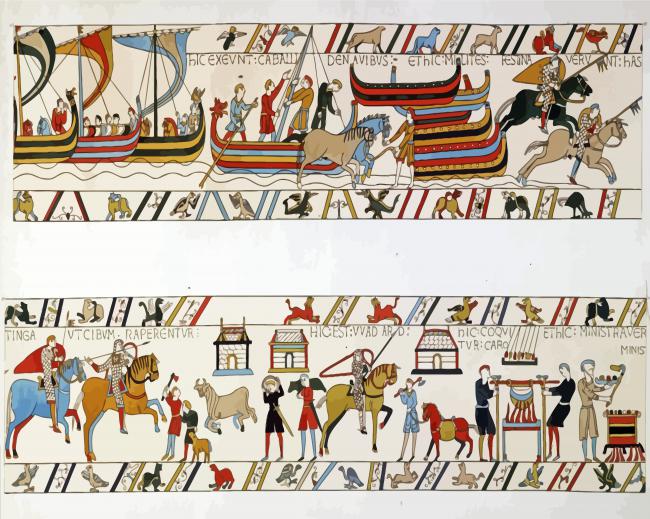 hIC EXEVNT:CABALL DENAVIBVS:- EThIC:MILITES: RESINA VERVNT:hAS
TINGA VTCIBVM · RAPERENTVR: HIC EST:VVADARD: hIC:COQVI EThIC:MINISTRAVER
TVR:CARO MINIS